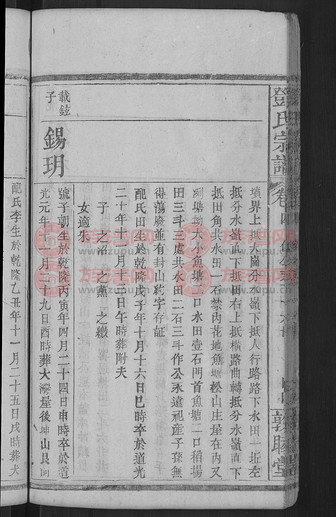 鄧氏宗譜
卷
敦睦堂
墳界上抵大崙分水嶺下抵人行路路下水田一坵左
抵分水嶺下抵田右上抵橫路曲轉抵分水嶺直下
抵田角共水田一石禁內花地魚塘松山庄屋在內又
大小魚塘二口水田壹石門首魚塘二口稻場
田三斗三處共水田二石三斗作公永遠祝產子孫無
得蕩廢並有封山約字存証
配氏田生於乾隆戊子年十月十六日巳時卒於道光
二十年十二月十三日午時葬附夫
子 之沼 之薰 之繳
女適樂
載鉉
子
錫玥
號于朝生於乾隆丙寅年四月二十四日申時卒於道
光元年十一月二十九日酉時葬大灣屋後山長
配氏李生於乾隆乙丑年十一月二十五日戌時葬夫